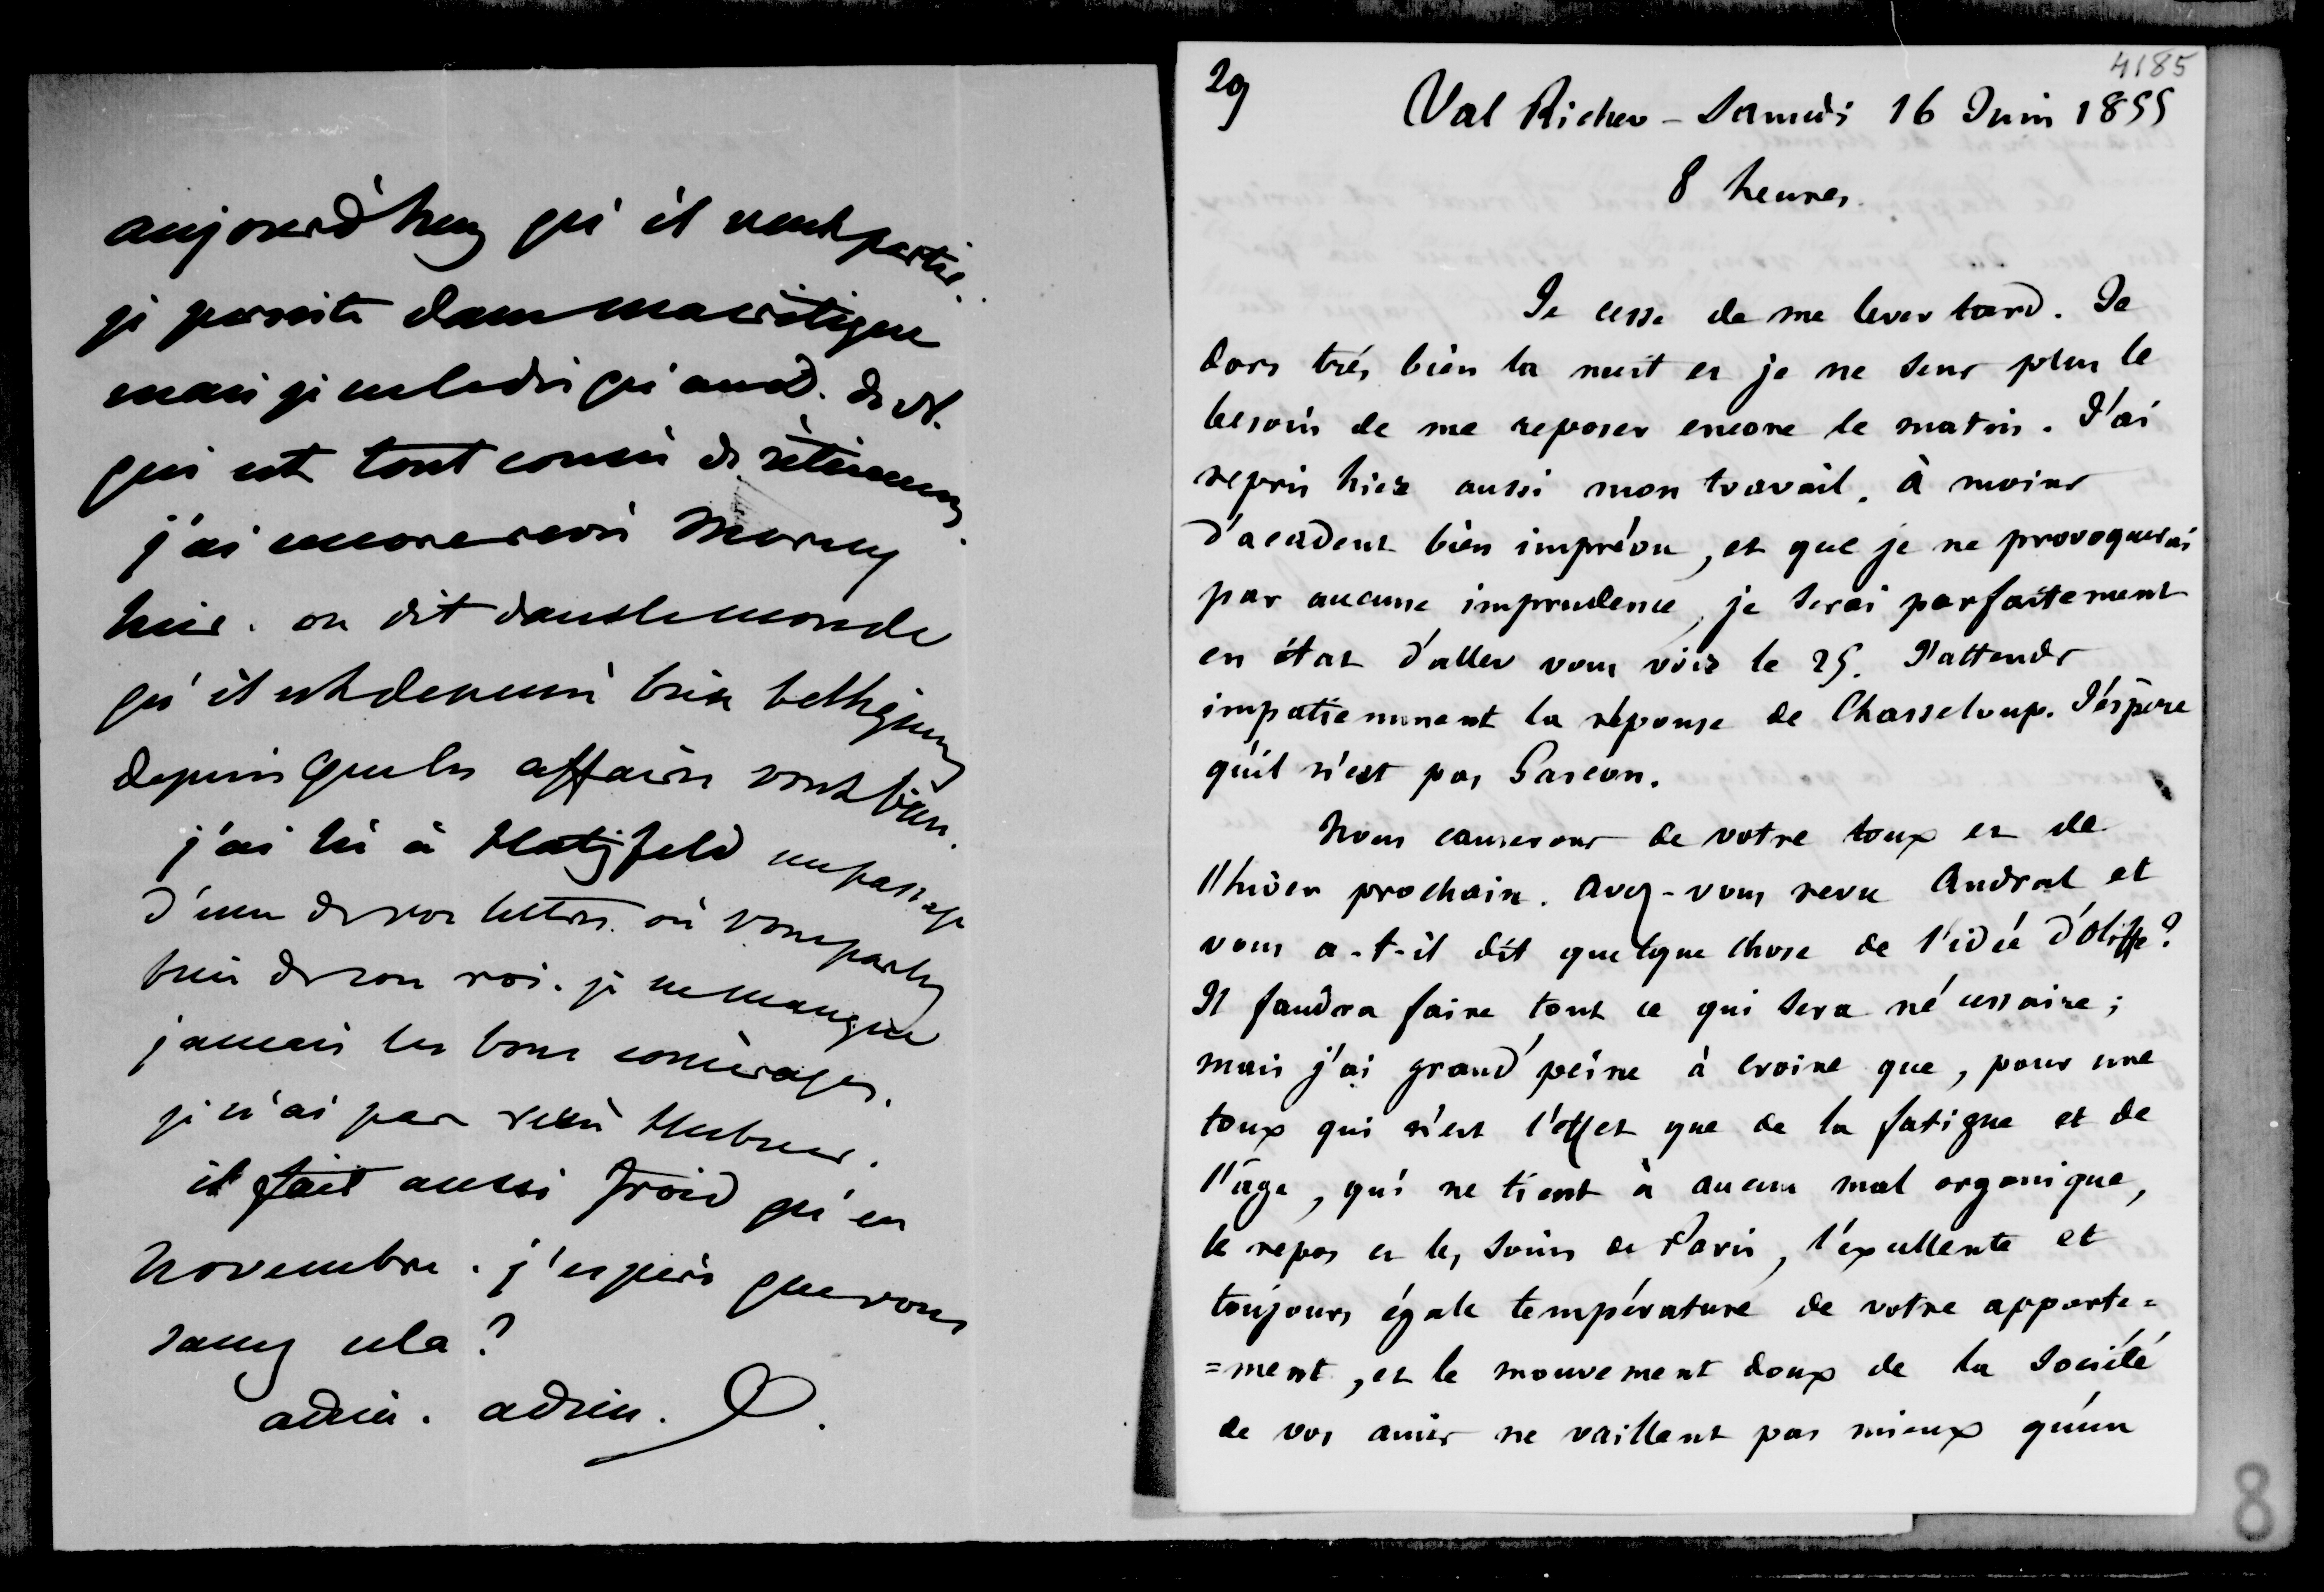 aujourd'huy qu'il veut partir.
je persiste dans ma critique
mais je ne le dis qu'a vous. de N.
qui est tout cousu de réticences
j'ai encore revu Morny
hier. on dit dans le monde
qu'il est devenu bien belliqueux
depuis que les affaires vont bien.
j'ai lu à Hatzfeld un passage
d'une de vos lettres où vous parlez
bien de son roi. je ne manque
jamais les bons commérages.
je n'ai pas revu Hubner.
il fait aussi froid qu'en
Novembre. j'espère que vous
savez cela ?
adieu. adieu.
4185
29
Val Richer - Samedi 16 Juin 1855
8 heures.
Je cesse de me lever tard. Je
dors très bien la nuit et je ne sens plus le
besoin de me reposer encore le matin. J'ai
repris hier aussi mon travail. à moins
d'accident bien imprévu, et que je ne provoquerai
par aucune imprudence, je serai parfaitement
en état d'aller vous voir le 25. J'attends
impatiemment la réponse de Chasseloup. J'espère
qu'il n'est pas Gascon.
Nous causerons de votre toux et de
l'hiver prochain. Avez-vous revu Andral et
vous a-t-il dit quelque chose de l'idée d'Oliffe?
Il faudra faire tout ce qui sera nécessaire;
mais j'ai grand'peine à croire que, pour une
toux qui n'est l'effet que de la fatigue et de
l'âge, qui ne tient à aucun mal organique,
le repos et les soins de Paris, l'excellente et
toujours égale température de votre apparte=
=ment, et le mouvement doux de la société
de vos amis ne vaillent pas mieux qu'un
8